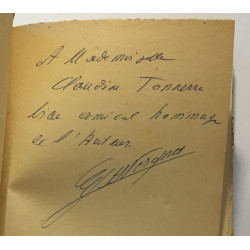 A Mademoiselle
Claudine Tonnerre
bien amical hommage
de l'Auteur